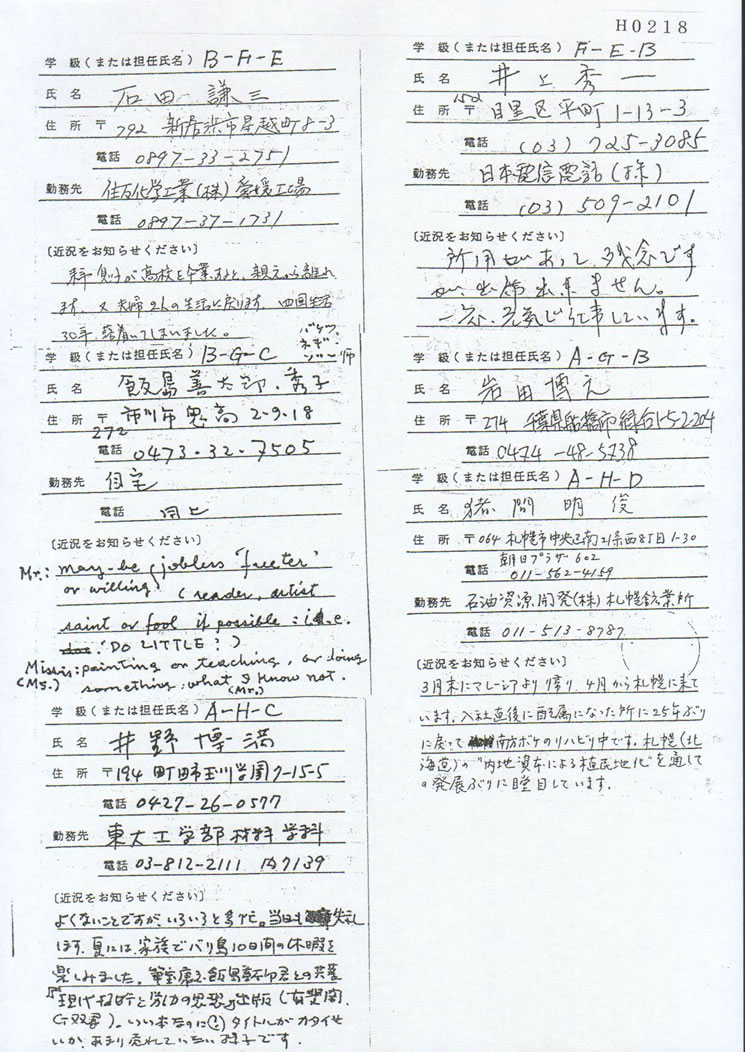 H0218
学 級(または担任氏名) B-F-E
氏 名 石田 謙三
住 所 〒792 新居浜市星越町8-3
電話 0897-33-2751
勤務先 住友化学工業(株)愛媛工場
電話 0897-37-1731
〔近況をお知らせください〕
が高校を卒業すると、親元から離れ
ます。又夫婦2人の生活に戻ります。四国生活
30年、落着いてしまいました。
学 級(または担任氏名) B-G-C
氏 名 飯島善太郎・秀子
住 所 〒272 市川市 高 2-9-18
電話 0473-32-7505
勤務先 自宅
電話 同上
〔近況をお知らせください〕
Mr.: may-be, jobless 'freeter'
or willing, (reader, artist
saint or fool if possible : i.e.
'DO LITTLE!)
(Ms.) painting or teaching, or doing
something, what I know not.
(Mr.)
学 級(または担任氏名) A-H-C
氏 名 井野博満
住 所 〒194 町田市玉川学園7-15-5
電話 0427-26-0577
勤務先 東大工学部材料学科
電話 03-812-2111 内7139
〔近況をお知らせください〕
よくないことですが、いろいろと多忙。当日も失礼
します。夏には、家族でバリ島10日間の休暇を
楽しみました。 飯島善太郎君との共著
『現代技術と労働の思想』出版(有斐閣、
)。いい本なのに(?)タイトルがカタイせ
いか、あまり売れていない様子です。
学 級(または担任氏名) F-E-B
氏 名 井上秀一
住 所 〒152 目黒区平町1-13-3
電話 (03) 725-3085
勤務先 日本電信電話(株)
電話 (03) 509-2101
〔近況をお知らせください〕
所用があって、残念です
が、出席出来ません。
一応、元気で仕事しています。
学 級(または担任氏名) A-G-B
氏 名 岩田博之
住 所 〒274 千葉県船橋市 1-5-2-204
電話 0474-48-5738
学 級(または担任氏名) A-H-D
氏 名 猪間明俊
住 所 〒064 札幌市中央区南21条西8丁目1-30
朝日プラザ602
電話 011-562-4159
勤務先 石油資源開発(株)札幌鉱業所
電話 011-513-8787
〔近況をお知らせください〕
3月末にマレーシアより帰り、4月から札幌に来て
います。入社直後に配属になった所に25年ぶり
に戻って南方ボケのリハビリ中です。札幌(北
海道)の"内地資本による植民地化"を通して
の発展ぶりに瞠目しています。